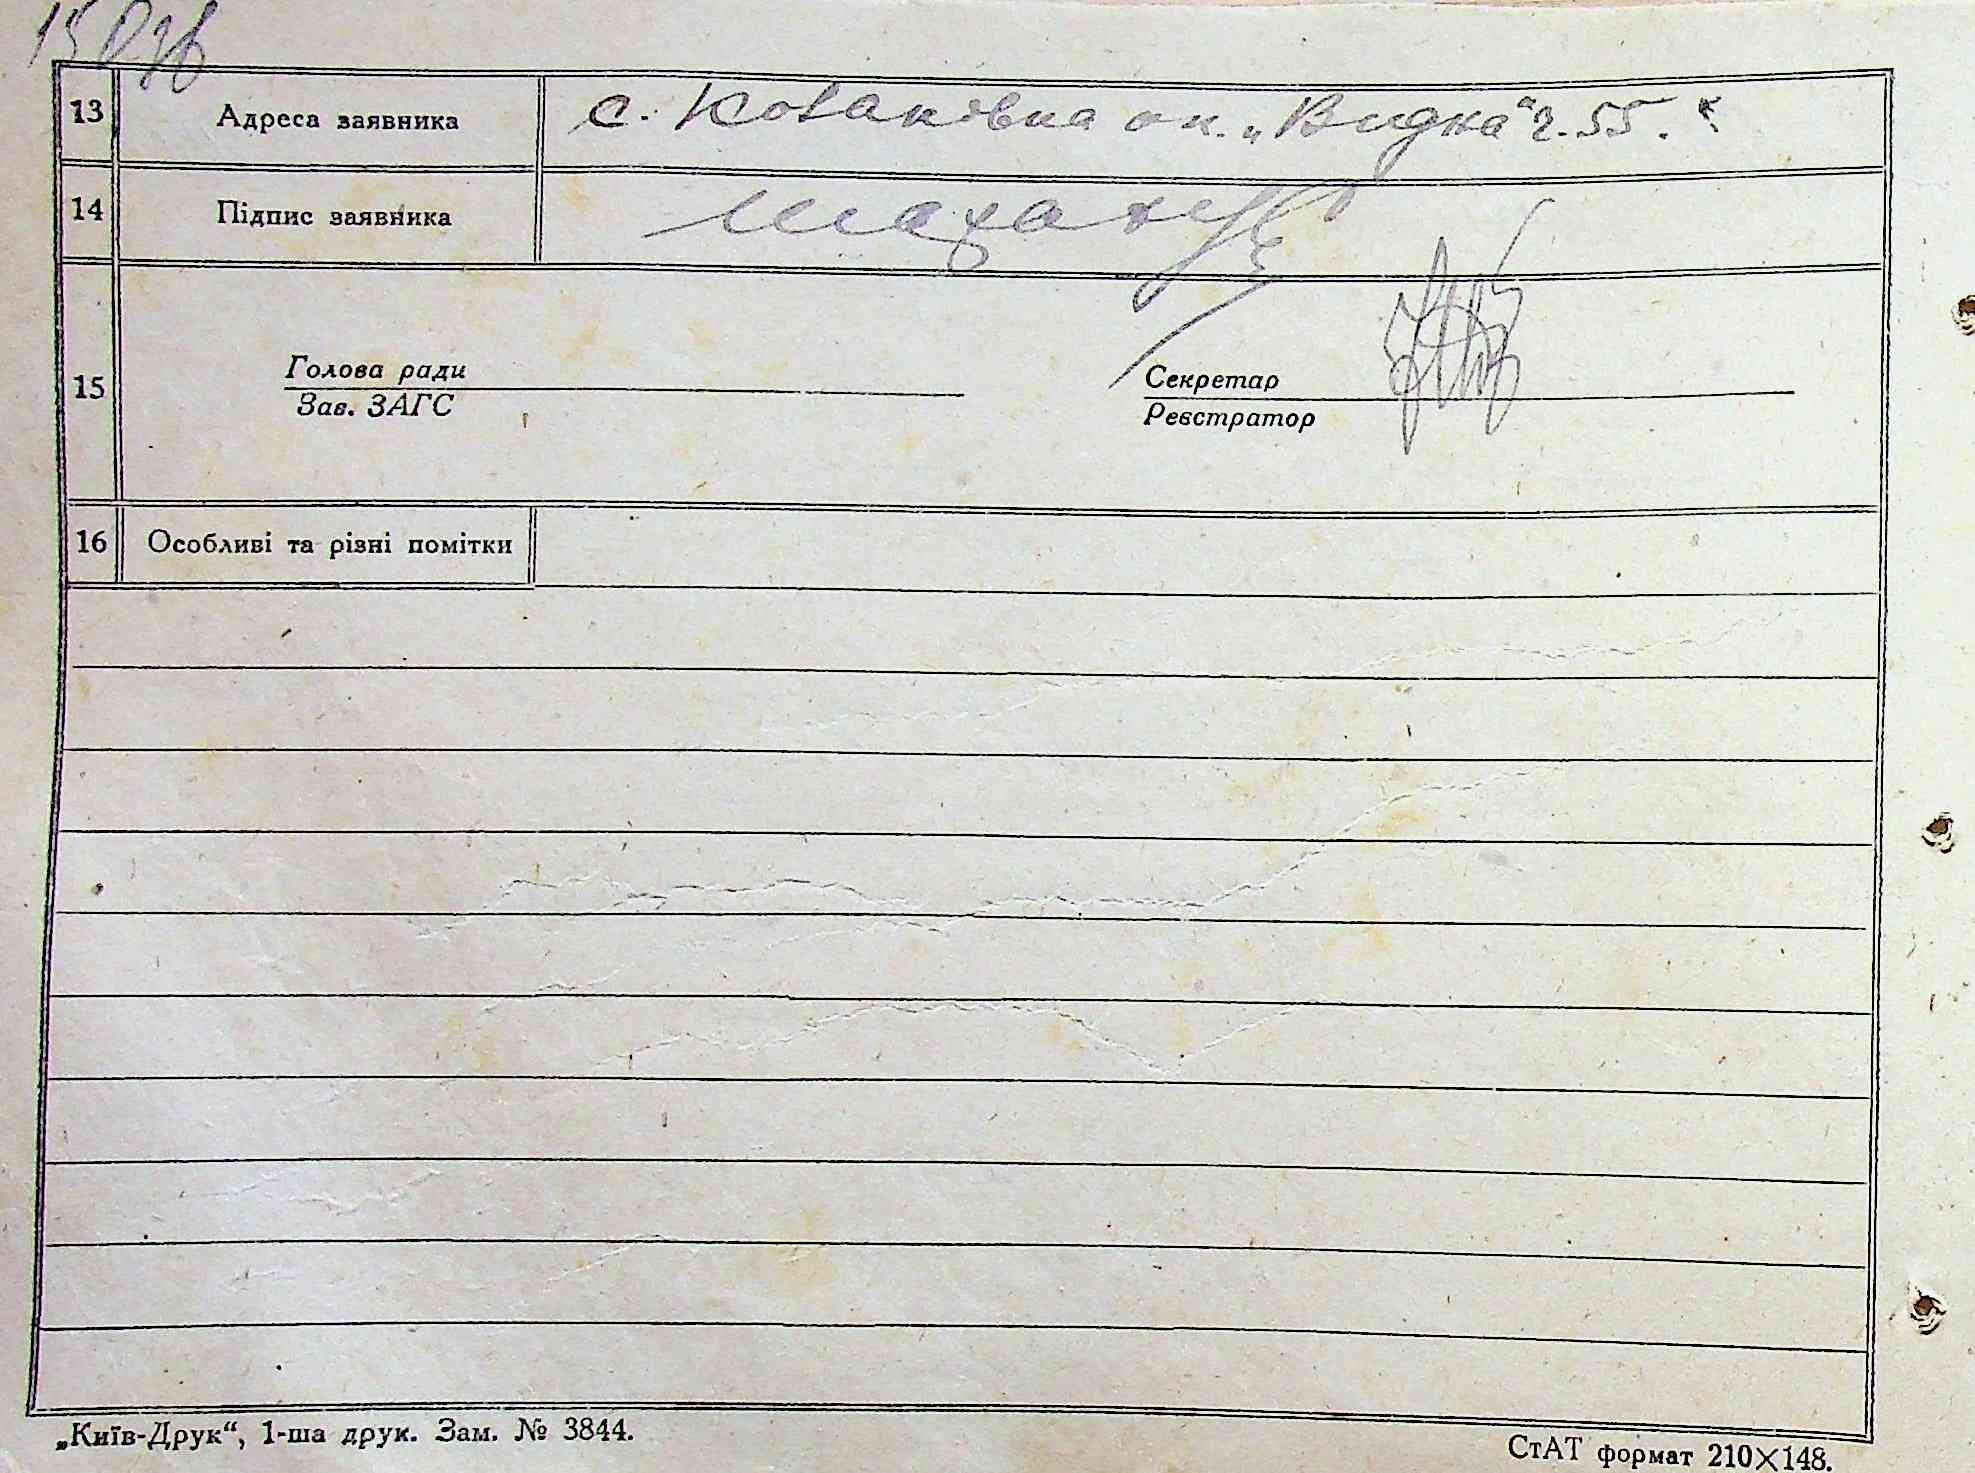 13 Адреса заявника с. Козаківка ок. „Видка“ ч. 55.
14 Підпис заявника
15 Голова ради Секретар
Зав. ЗАГС Реєстратор
16 Особливі та різні помітки
„Київ-Друк“, 1-ша друк. Зам. № 3844.
СтАТ формат 210×148.